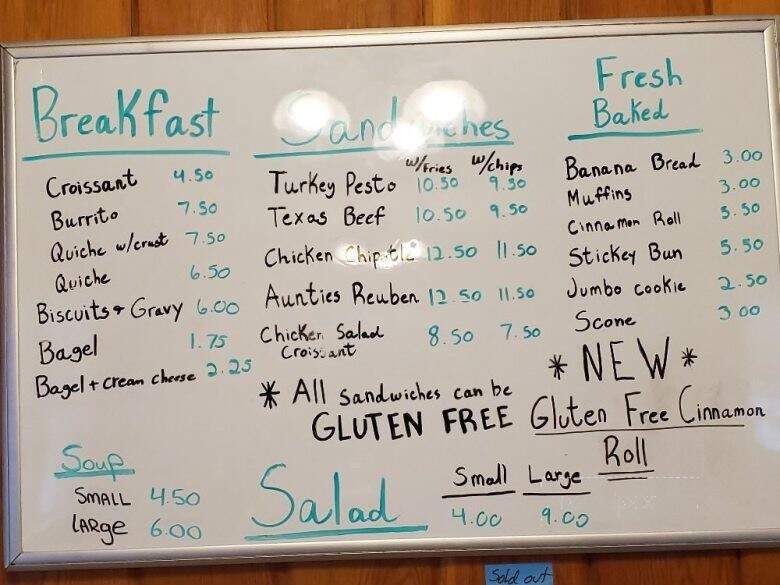 Breakfast
Croissant 4.50
Burrito 7.50
Quiche w/crust 7.50
Quiche 6.50
Biscuits + Gravy 6.00
Bagel 1.75
Bagel + cream cheese 2.25
Soup
SMALL 4.50
LARge 6.00
Sandwiches
w/fries w/chips
Turkey Pesto 10.50 9.50
Texas Beef 10.50 9.50
Chicken Chipotle 12.50 11.50
Aunties Reuben 12.50 11.50
Chicken Salad
Croissant 8.50 7.50
* All sandwiches can be
GLUTEN FREE
Salad
Small Large
4.00 9.00
Fresh
Baked
Banana Bread 3.00
Muffins 3.00
Cinnamon Roll 5.50
Stickey Bun 5.50
Jumbo cookie 2.50
Scone 3.00
* NEW *
Gluten Free Cinnamon
Roll
Sold out